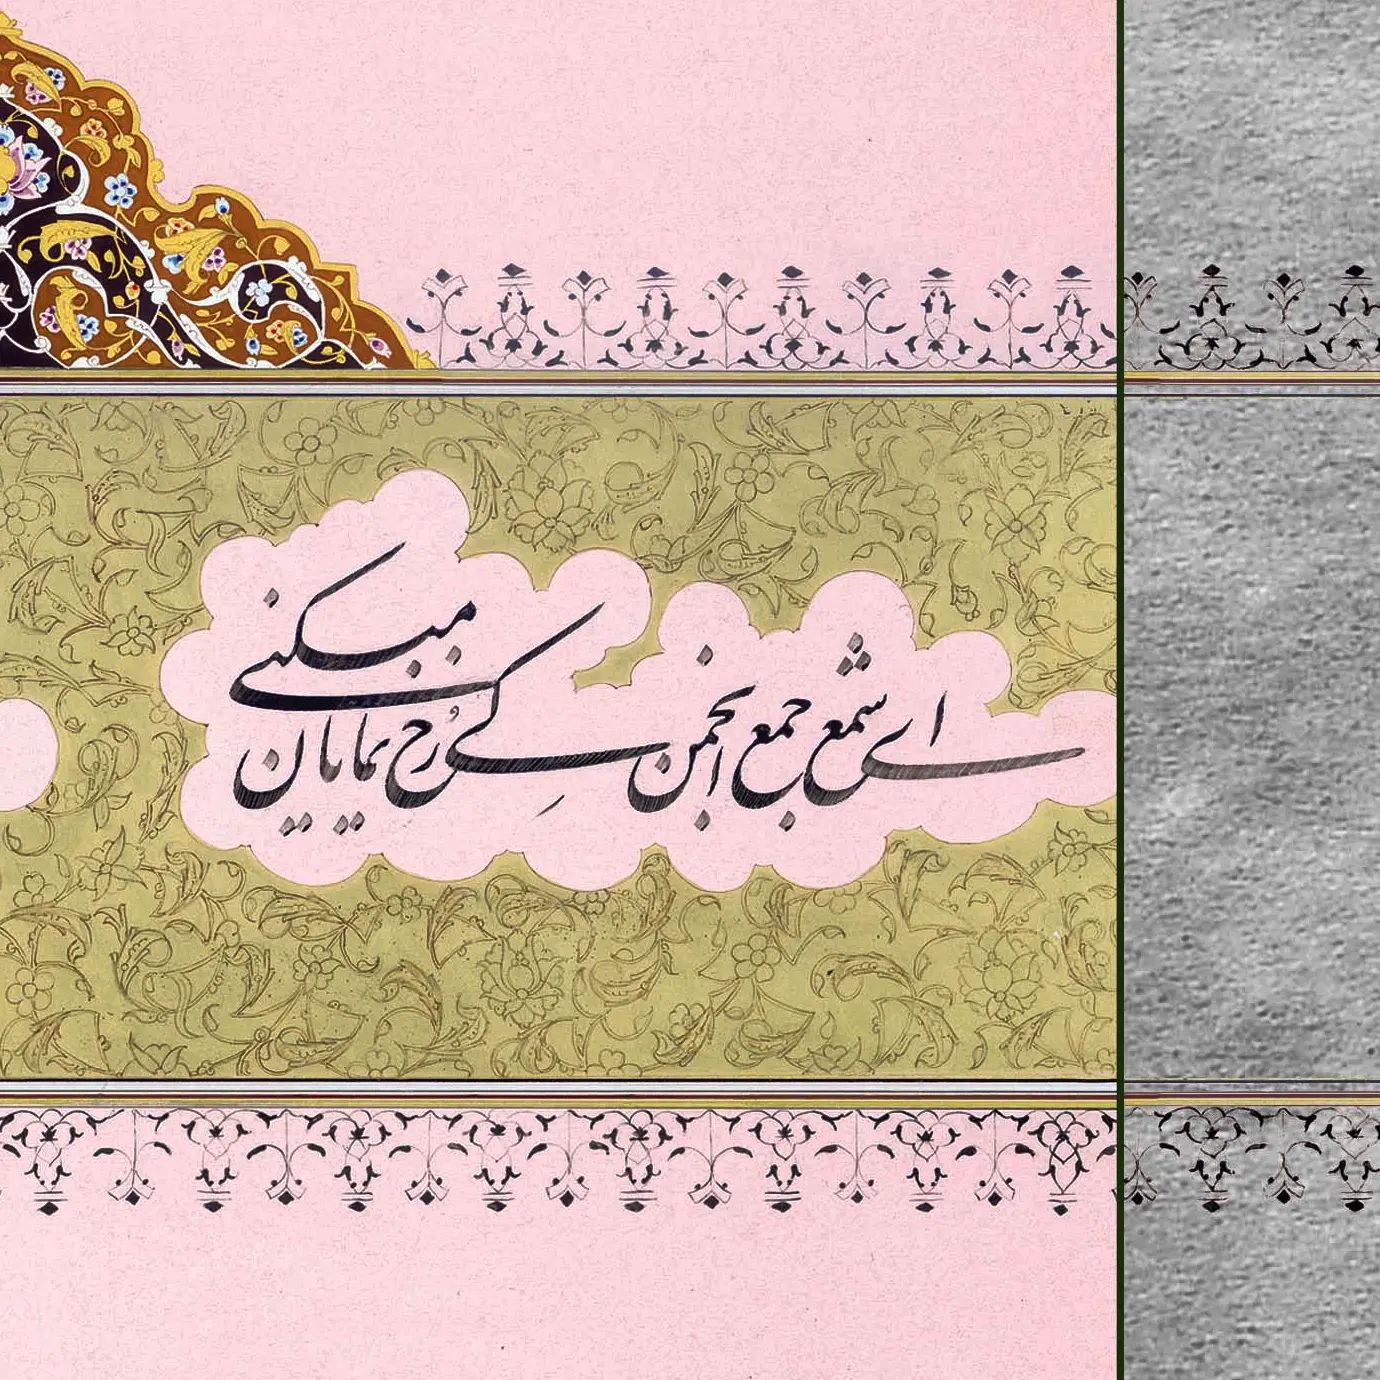 ای شمع جمع انجمن کی رُخ نمایان میکنی